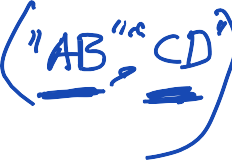 ("AB", "CD")